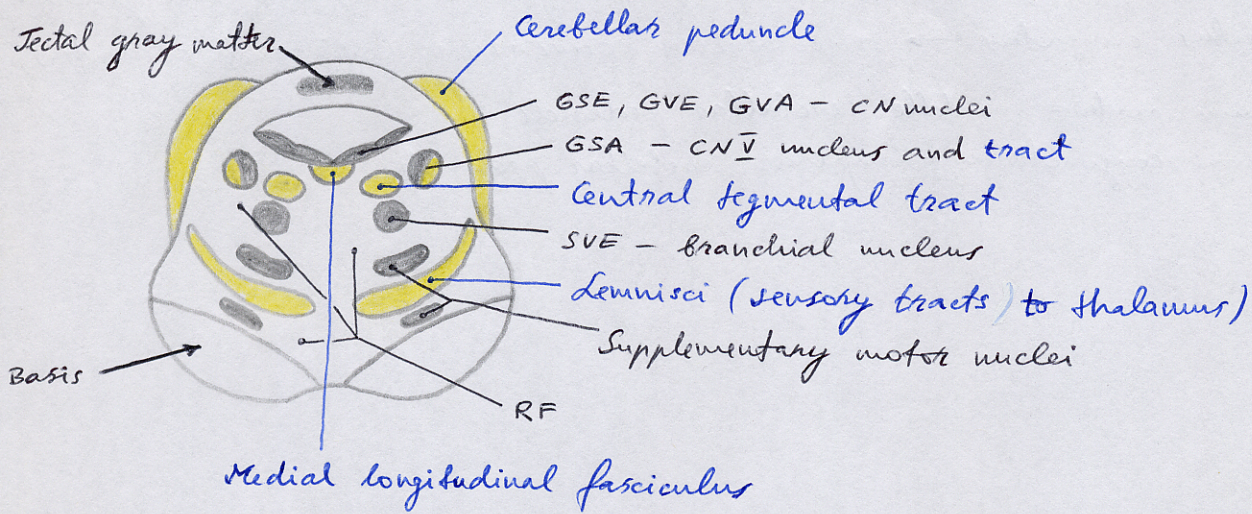 Tectal gray matter
Cerebellar peduncle
GSE, GVE, GVA – CN nuclei
GSA – CN V nucleus and tract
Central tegmental tract
SVE – branchial nucleus
Lemnisci (sensory tracts) to thalamus)
Supplementary motor nuclei
Basis
RF
Medial longitudinal fasciculus